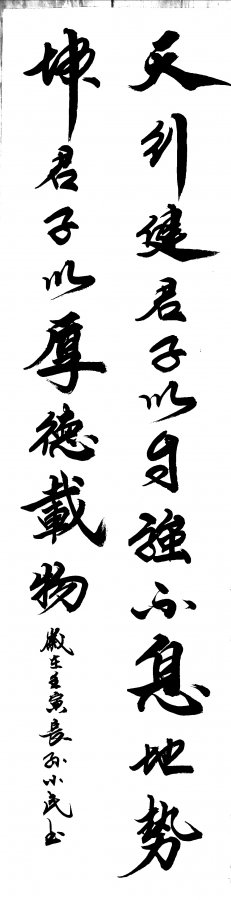 天行健君子以自強不息地勢
坤君子以厚德載物
歲在壬寅長孫小民書